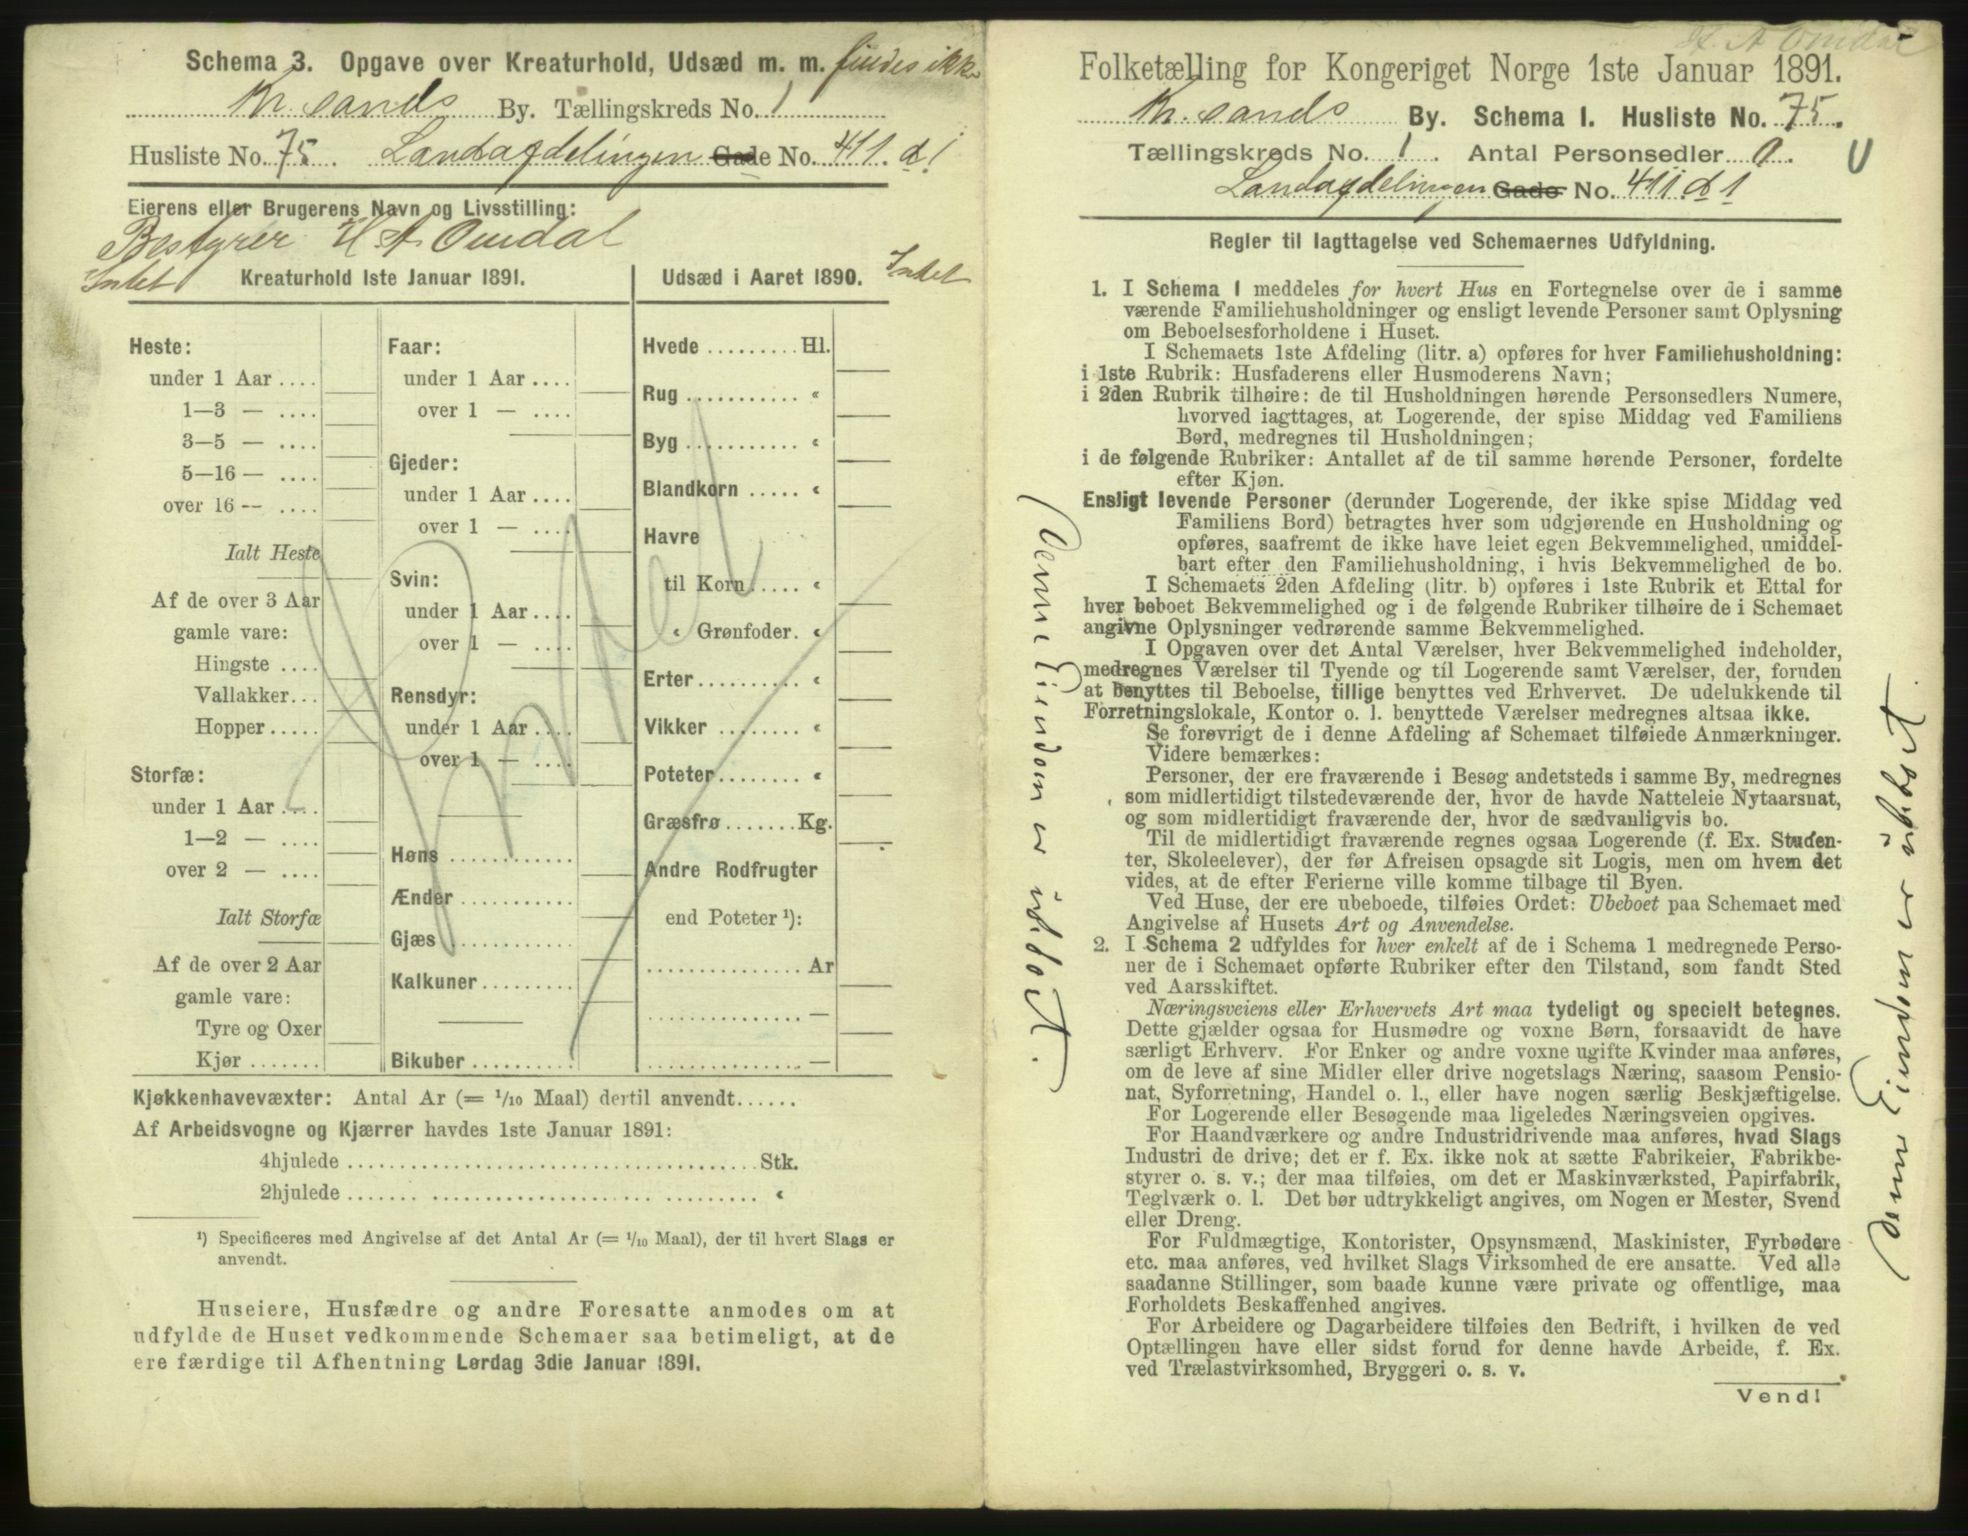 Schema 3. Opgave over Kreaturhold, Udsæd m. m. findes ikke
Kr. sands By. Tællingskreds No. 1
Husliste No. 75. Landafdelingen Gade No. 411. d 1
Eierens eller Brugerens Navn og Livsstilling:
Bestyrer H A Omdal
Intet Kreaturhold 1ste Januar 1891. Udsæd i Aaret 1890. Intet
Heste:
under 1 Aar....
1—3 — ....
3—5 — ....
5—16 — ....
over 16 -- ....
Ialt Heste
Af de over 3 Aar
gamle vare:
Hingste ....
Vallakker...
Hopper.....
Storfæ:
under 1 Aar....
1—2 — ....
over 2 — ....
Ialt Storfæ
Af de over 2 Aar
gamle vare:
Tyre og Oxer
Kjør .......
Faar:
under 1 Aar....
over 1 — ....
Gjeder:
under 1 Aar....
over 1 — ....
Svin:
under 1 Aar....
over 1 — ....
Rensdyr:
under 1 Aar....
over 1 — ....
Høns ...........
Ænder..........
Gjæs ...........
Kalkuner.........
Bikuber..........
Hvede .........Hl.
Rug ........... «
Byg ........... «
Blandkorn ..... «
Havre
til Korn..... «
« Grønfoder. «
Erter.......... «
Vikker ........ «
Poteter........ «
Græsfrø.......Kg.
Andre Rodfrugter
end Poteter ¹):
............... Ar
............... —
............... —
Kjøkkenhavevæxter: Antal Ar (= 1/10 Maal) dertil anvendt......
Af Arbeidsvogne og Kjærrer havdes 1ste Januar 1891:
4hjulede ........................................Stk.
2hjulede ....... ..................... ......... «
¹) Specificeres med Angivelse af det Antal Ar (= 1/10 Maal), der til hvert Slags er
anvendt.
Huseiere, Husfædre og andre Foresatte anmodes om at
udfylde de Huset vedkommende Schemaer saa betimeligt, at de
ere færdige til Afhentning Lørdag 3die Januar 1891.
H. A Omdal
Folketælling for Kongeriget Norge 1ste Januar 1891.
Kr. sands By. Schema I. Husliste No. 75.
Tællingskreds No. 1. Antal Personsedler 0. U
Landafdelingen Gade No. 411. d 1
Regler til Iagttagelse ved Schemaernes Udfyldning.
1. I Schema 1 meddeles for hvert Hus en Fortegnelse over de i samme
værende Familiehusholdninger og ensligt levende Personer samt Oplysning
om Beboelsesforholdene i Huset.
I Schemaets 1ste Afdeling (litr. a) opføres for hver Familiehusholdning:
i 1ste Rubrik: Husfaderens eller Husmoderens Navn;
i 2den Rubrik tilhøire: de til Husholdningen hørende Personsedlers Numere,
hvorved iagttages, at Logerende, der spise Middag ved Familiens
Bord, medregnes til Husholdningen;
i de følgende Rubriker: Antallet af de til samme hørende Personer, fordelte
efter Kjøn.
Ensligt levende Personer (derunder Logerende, der ikke spise Middag ved
Familiens Bord) betragtes hver som udgjørende en Husholdning og
opføres, saafremt de ikke have leiet egen Bekvemmelighed, umiddel-
bart efter den Familiehusholdning, i hvis Bekvemmelighed de bo.
I Schemaets 2den Afdeling (litr. b) opføres i 1ste Rubrik et Ettal for
hver beboet Bekvemmelighed og i de følgende Rubriker tilhøire de i Schemaet
angivne Oplysninger vedrørende samme Bekvemmelighed.
I Opgaven over det Antal Værelser, hver Bekvemmelighed indeholder,
medregnes Værelser til Tyende og til Logerende samt Værelser, der, foruden
at benyttes til Beboelse, tillige benyttes ved Erhvervet. De udelukkende til
Forretningslokale, Kontor o. l. benyttede Værelser medregnes altsaa ikke.
Se forøvrigt de i denne Afdeling af Schemaet tilføiede Anmærkninger.
Videre bemærkes:
Personer, der ere fraværende i Besøg andetsteds i samme By, medregnes
som midlertidigt tilstedeværende der, hvor de havde Natteleie Nytaarsnat,
og som midlertidigt fraværende der, hvor de sædvanligvis bo.
Til de midlertidigt fraværende regnes ogsaa Logerende (f. Ex. Studen-
ter, Skoleelever), der før Afreisen opsagde sit Logis, men om hvem det
vides, at de efter Ferierne ville komme tilbage til Byen.
Ved Huse, der ere ubeboede, tilføies Ordet: Ubeboet paa Schemaet med
Angivelse af Husets Art og Anvendelse.
2. I Schema 2 udfyldes for hver enkelt af de i Schema 1 medregnede Perso-
ner de i Schemaet opførte Rubriker efter den Tilstand, som fandt Sted
ved Aarsskiftet.
Næringsveiens eller Erhvervets Art maa tydeligt og specielt betegnes.
Dette gjælder ogsaa for Husmødre og voxne Børn, forsaavidt de have
særligt Erhverv. For Enker og andre voxne ugifte Kvinder maa anføres,
om de leve af sine Midler eller drive nogetslags Næring, saasom Pensio-
nat, Syforretning, Handel o. l., eller have nogen særlig Beskjæftigelse.
For Logerende eller Besøgende maa ligeledes Næringsveien opgives.
For Haandværkere og andre Industridrivende maa anføres, hvad Slags
Industri de drive; det er f. Ex. ikke nok at sætte Fabrikeier, Fabrikbe-
styrer o. s. v.; der maa tilføies, om det er Maskinværksted, Papirfabrik,
Teglværk o. l. Det bør udtrykkeligt angives, om Nogen er Mester, Svend
eller Dreng.
For Fuldmægtige, Kontorister, Opsynsmænd, Maskinister, Fyrbødere
etc. maa anføres, ved hvilket Slags Virksomhed de ere ansatte. Ved alle
saadanne Stillinger, som baade kunne være private og offentlige, maa
Forholdets Beskaffenhed angives.
For Arbeidere og Dagarbeidere tilføies den Bedrift, i hvilken de ved
Optællingen have eller sidst forud for denne havde Arbeide, f. Ex.
ved Trælastvirksomhed, Bryggeri o. s. v.
Vend!
Denne Eiendom er ubebot.
Denne Eiendom er ubebot.